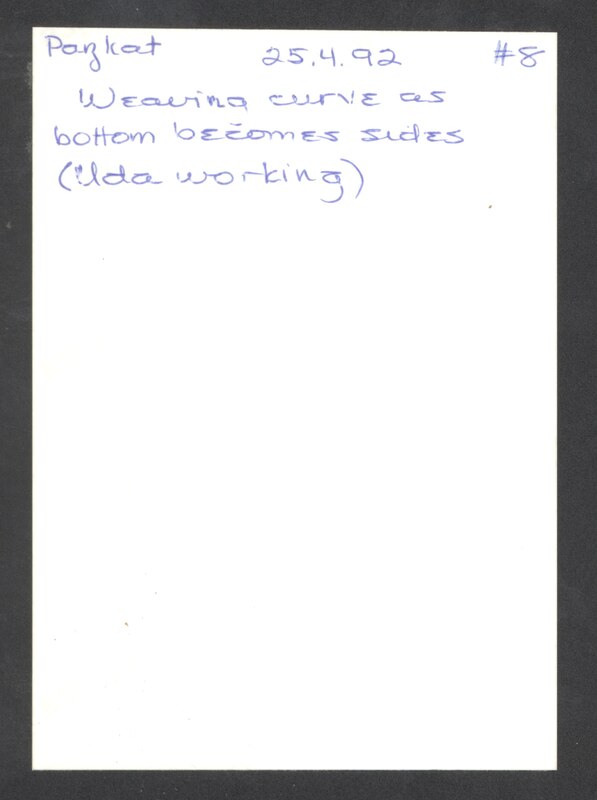 Pazkat 25.4.92 #8
Weaving curve as
bottom becomes sides
(Uda working)